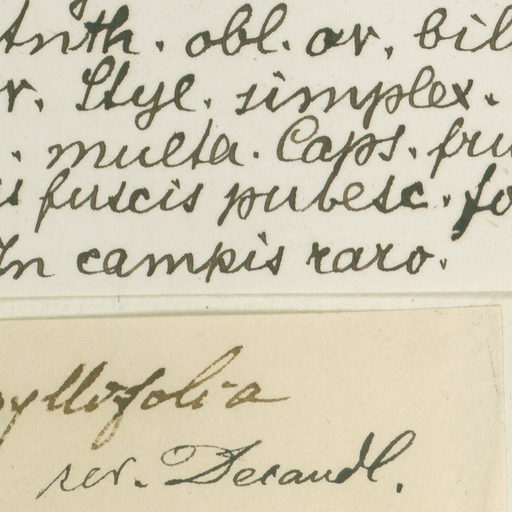 Anth. obl. ov. bil
r. Styl. simplex.
. multa. Caps. fru
is fuscis pubesc. fo
In campis raro.
yllifolia
rev. Decandl.